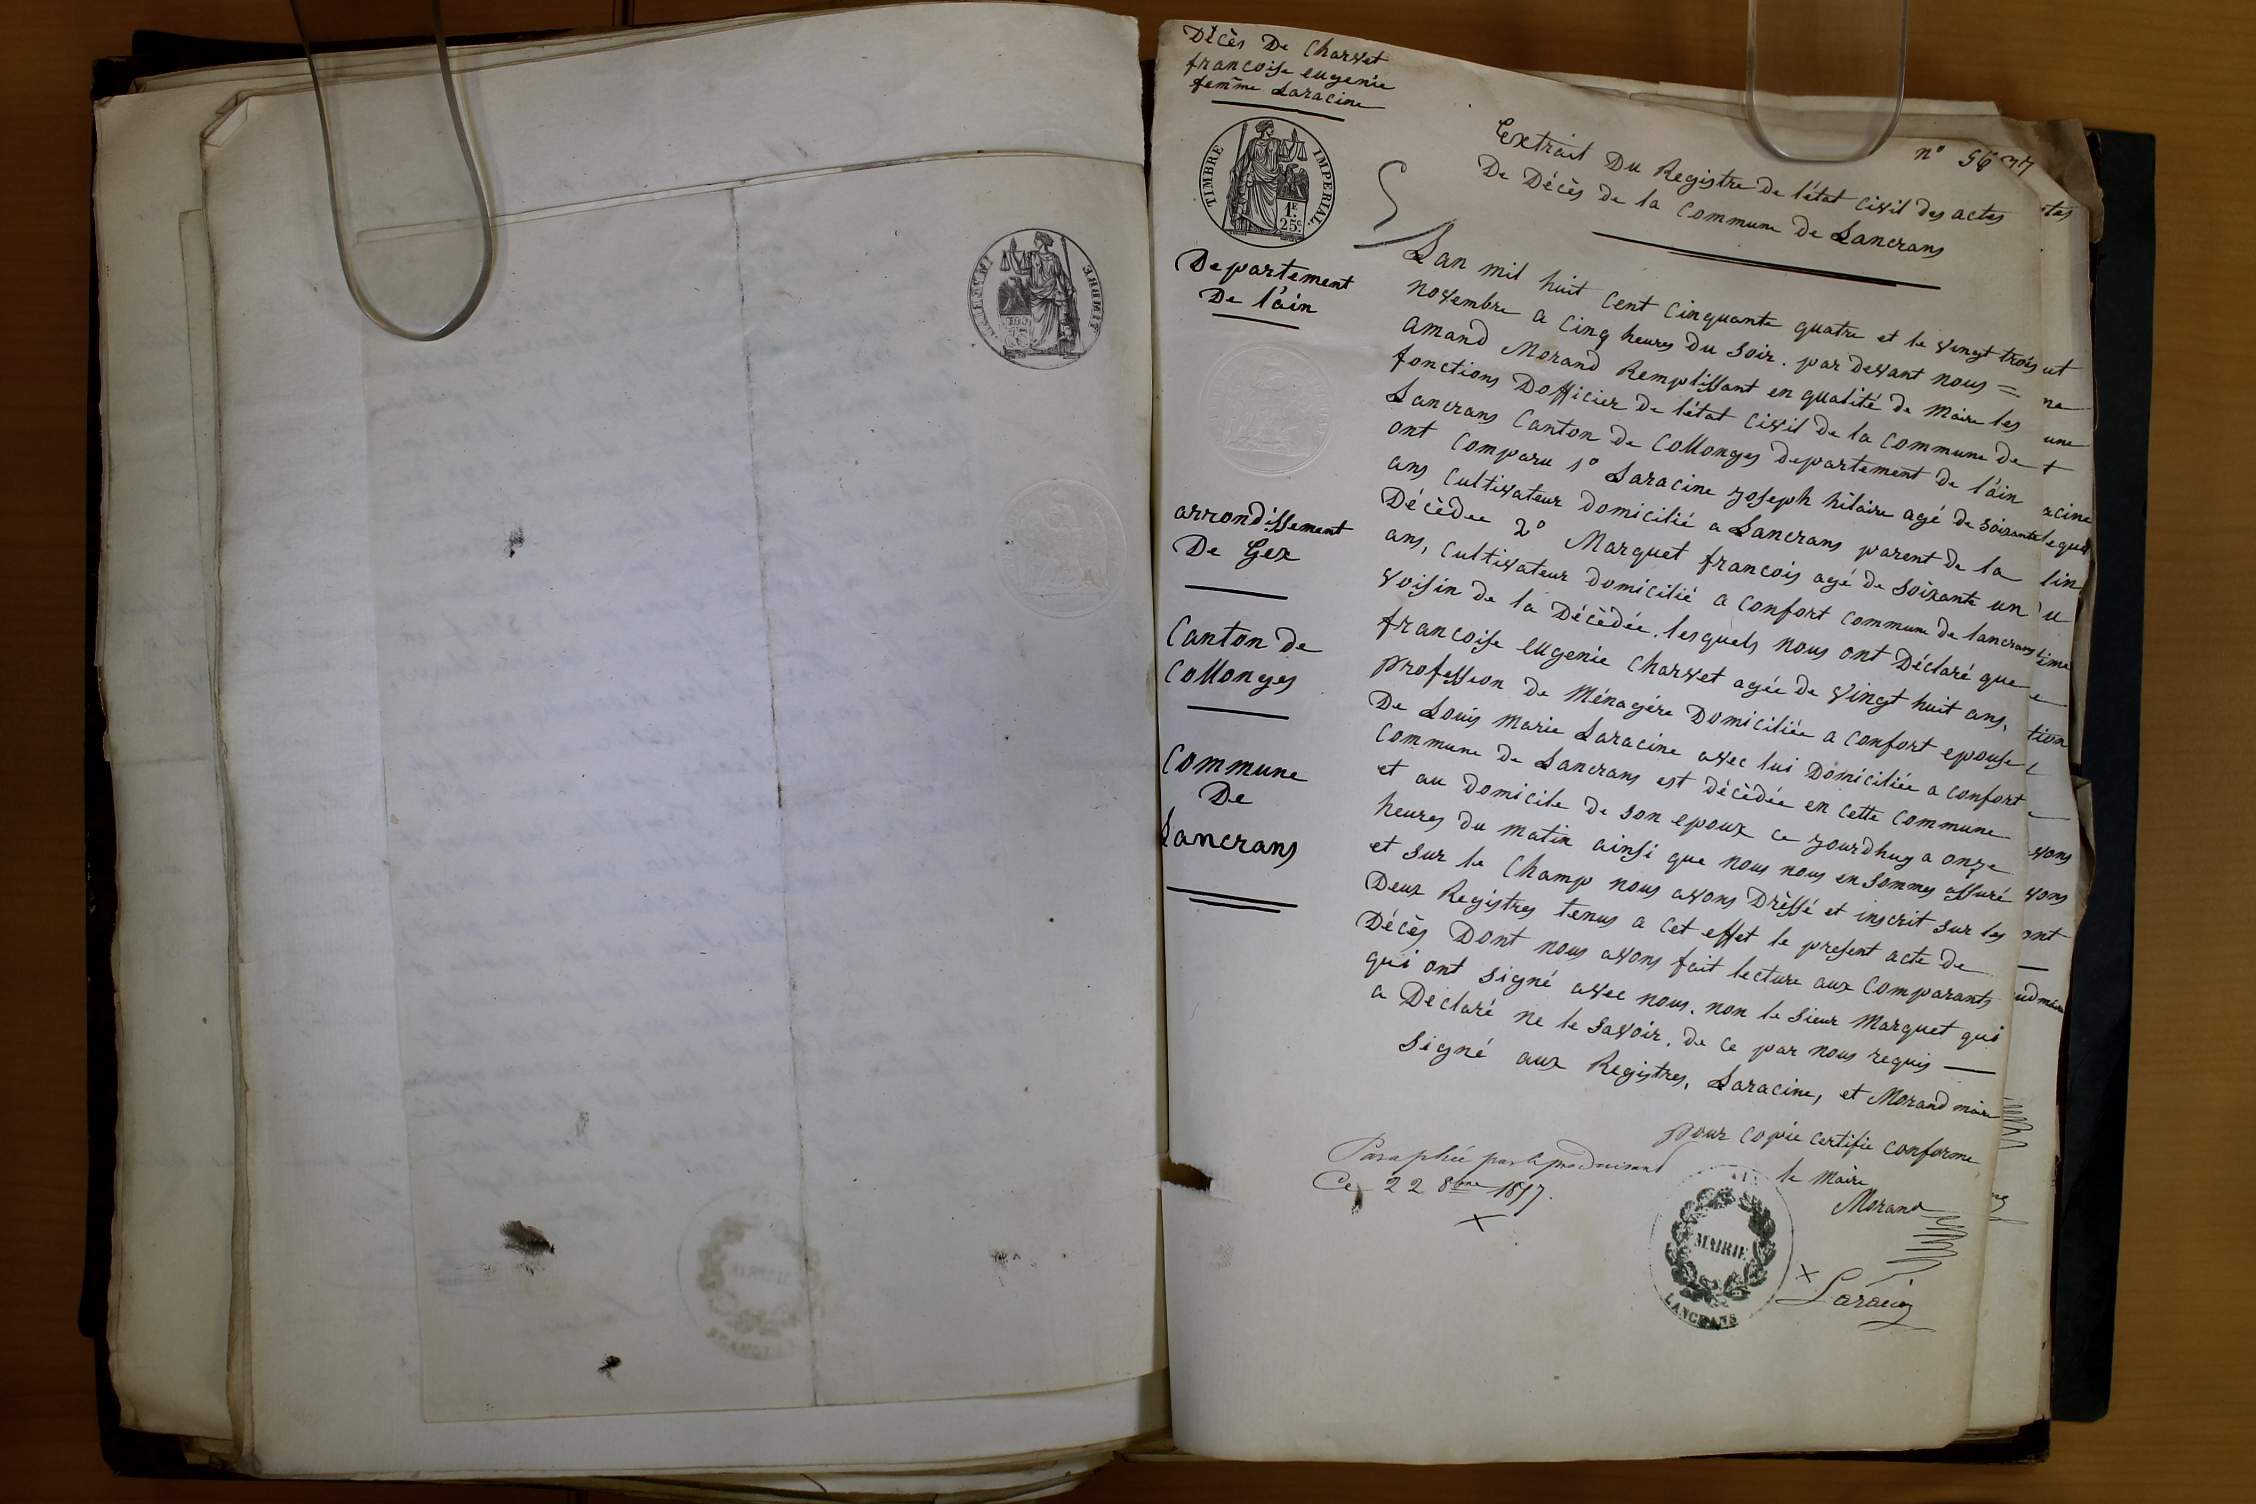 Décès De Charvet
francoise eugenie
femme Laracine
TIMBRE IMPERIAL
1F.
25c
Departement
De l'ain
arrondissement
De Gex
Canton de
Collonges
Commune
De
Lancrans
n° 56
Extrait Du Registre de l'état civil des actes
De Décès de la commune de Lancrans
Lan mil huit cent cinquante quatre et le vingt trois
novembre a cinq heures du soir. par devant nous =
amand Morand Remplissant en qualité de maire les
fonctions Dofficier de l'état civil de la commune de
Lancrans Canton de Collonges departement de l'ain
ont comparu 1° Laracine joseph hilaire agé de soixante
ans cultivateur domicilié a Lancrans parent de la
Décèdee 2° Marquet francois agé de soixante un
ans, cultivateur domicilié a confort commune de lancrans
voisin de la Décèdée. lesquels nous ont Déclaré que
francoise eugenie charvet agée de vingt huit ans,
profession de Ménagére Domiciliée a confort epouse
De Louis Marie Laracine avec lui Domiciliée a confort
commune de Lancrans est décèdée en cette commune
et au domicile de son epoux ce jourdhuy a onze
heures du matin ainsi que nous nous en sommes assuré
et sur le champ nous avons Dréssé et inscrit sur les
Deux Registres tenus a cet effet le present acte de
Décès Dont nous avons fait lecture aux comparants
qui ont signé avec nous. non le sieur Marquet qui
a Déclaré ne le savoir. de ce par nous requis
Signé aux Registres, Laracine, et Morand maire
pour copie certifie conforme
le Maire
Morand
Paraphée par le produisant
Ce 22 8bre 1857.
MAIRIE
LANCRANS
Laracine